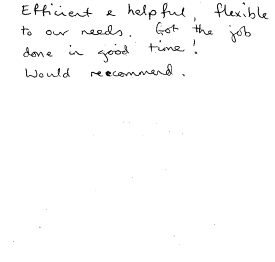 Efficient & helpful, flexible
to our needs. Got the job
done in good time!
Would reecommend.